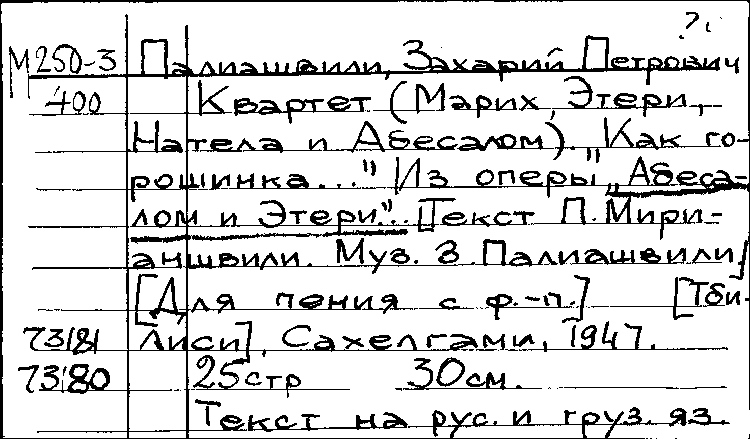 М250-3 Палиашвили, Захарий Петрович
400 Квартет (Марих, Этери,
Натела и Абесалом). „Как го-
рошинка..." Из оперы „Абеса-
лом и Этери"... [Текст П. Мири-
аншвили. Муз. З. Палиашвили]
[Для пения с ф.-п.] [Тби-
73181 лиси], Сахелгами, 1947.
73180 25 стр 30 см.
Текст на рус. и груз. яз.